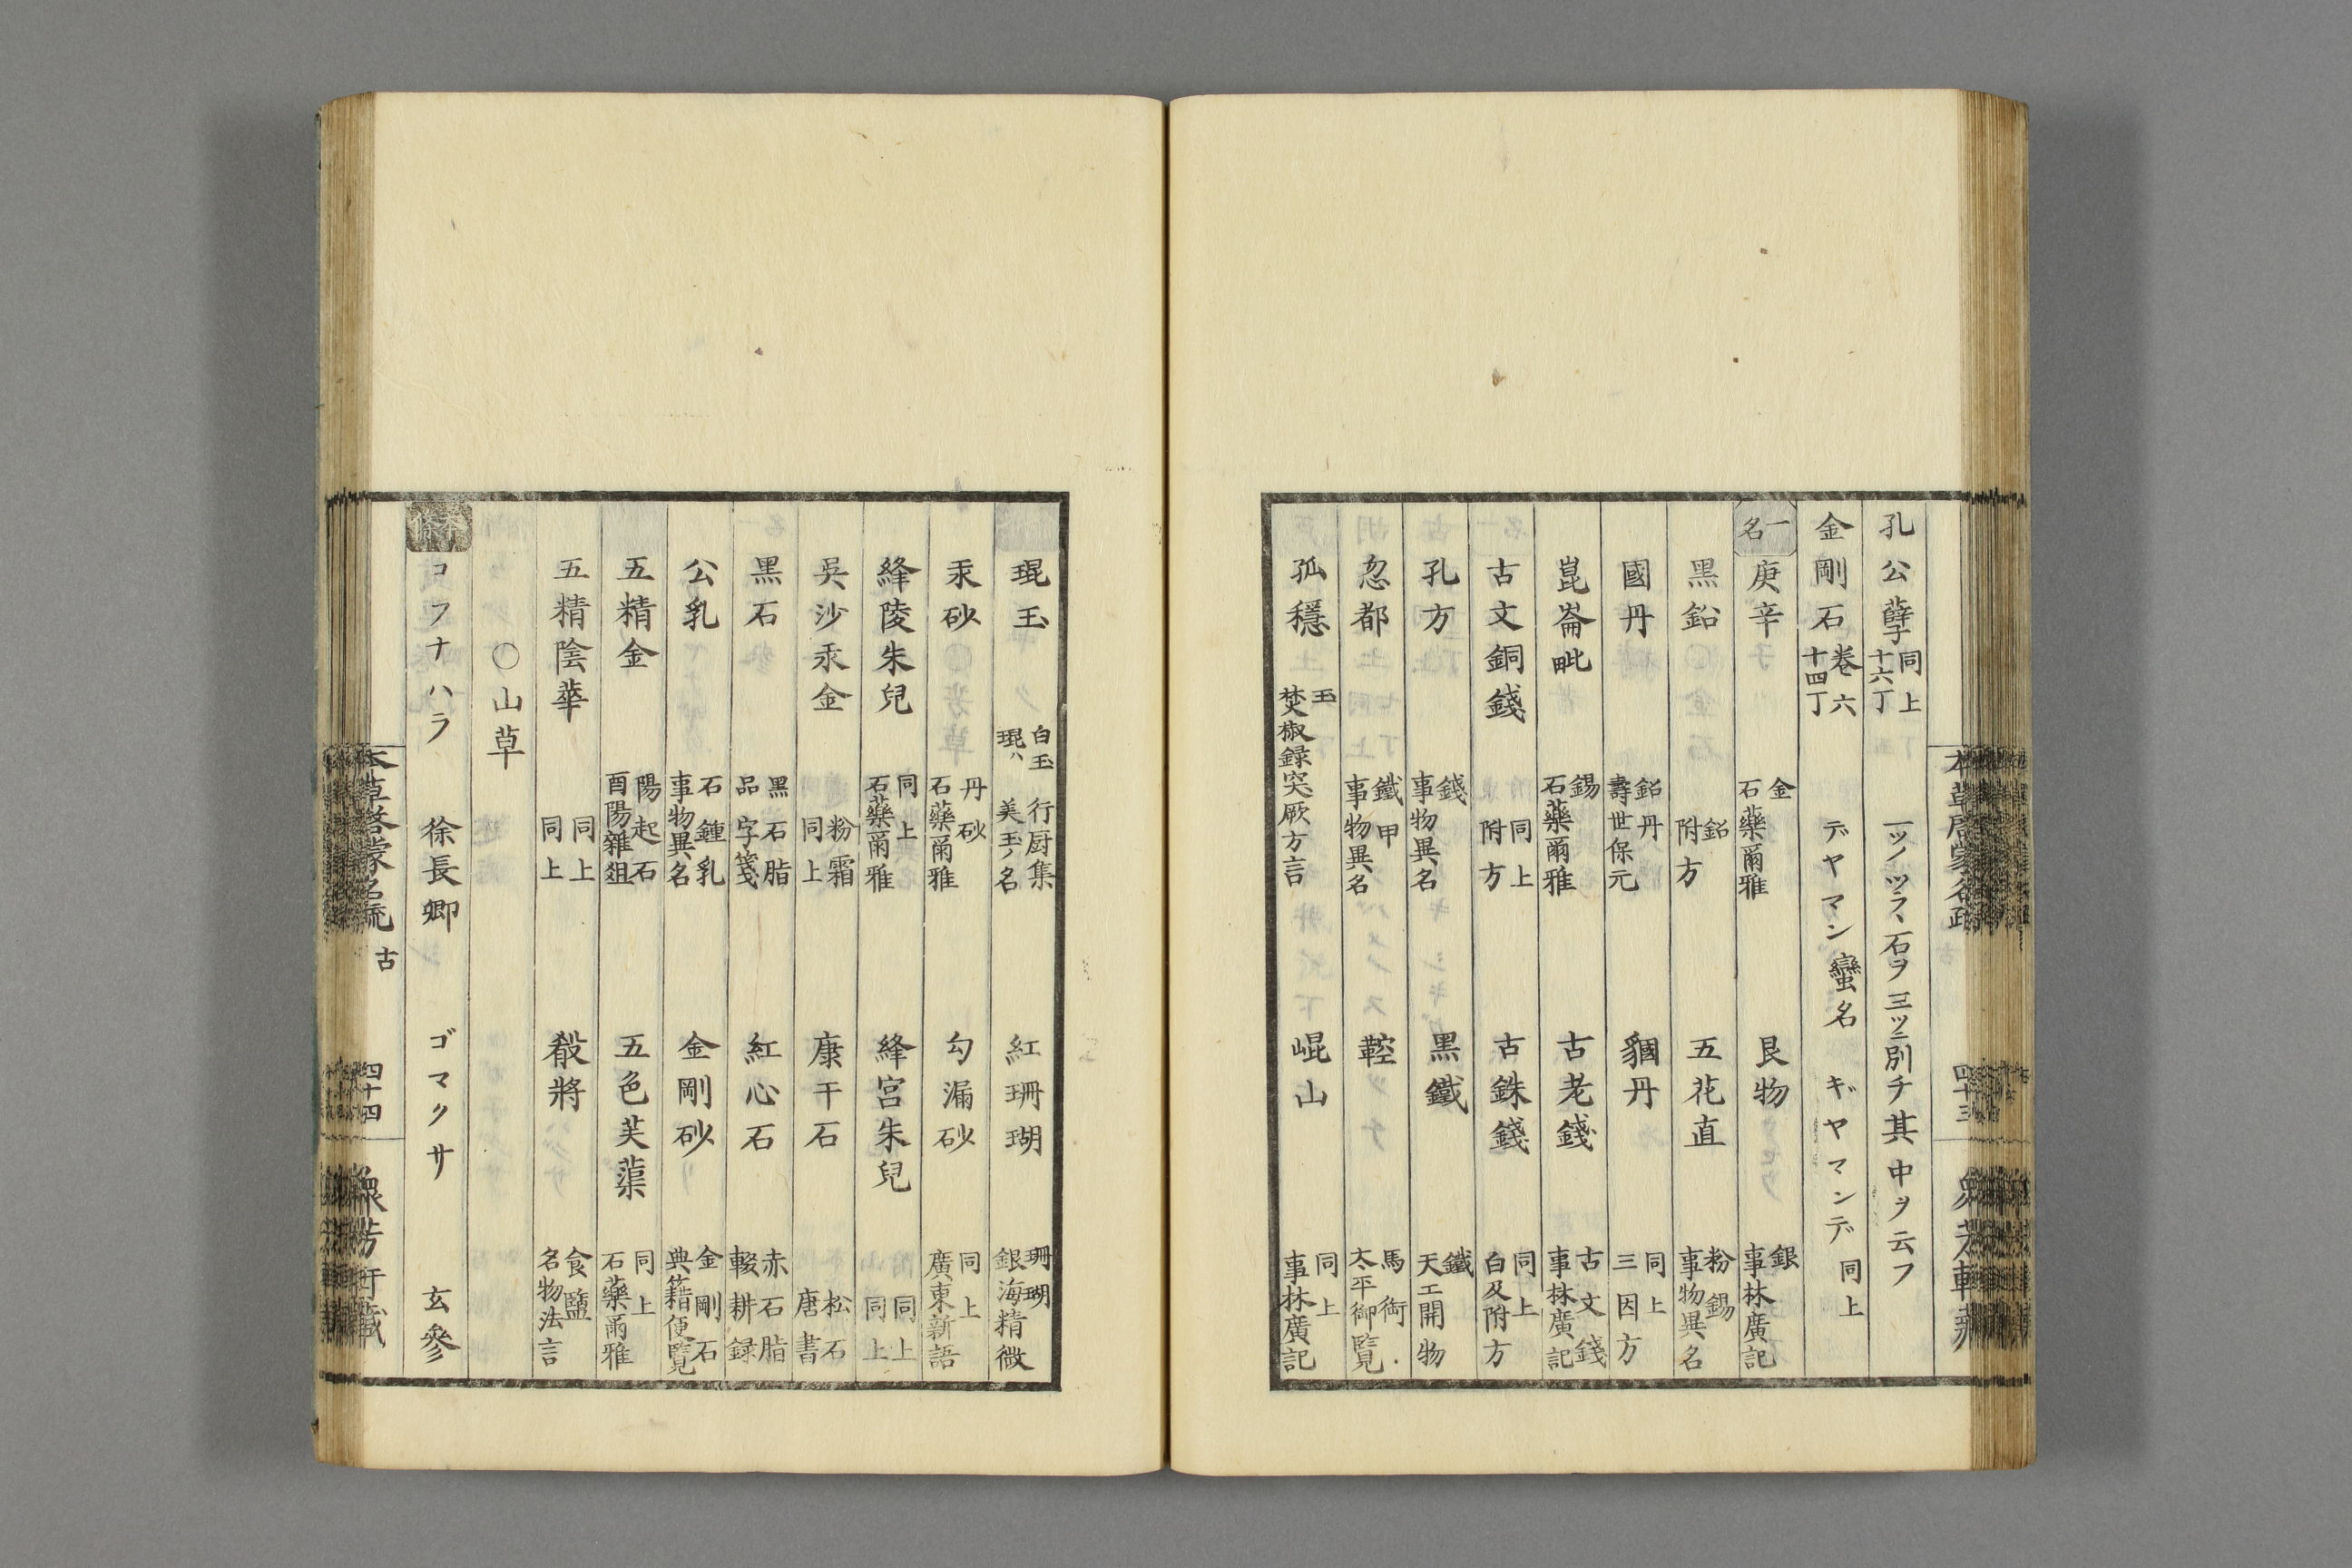 孔公孽 同上 十六丁 一ツノツラヽ石ヲ三ツニ別チ其中ヲ云フ
金剛石 卷六 十四丁 デヤマン 蠻名 ギヤマンデ 同上
一名 庚辛 金 石藥爾雅 艮物 銀 事林廣記
黑鉛 鉛 附方 五花直 粉錫 事物異名
國丹 鉛丹 壽世保元 貑丹 同上 三因方
崑崙毗 錫 石藥爾雅 古老錢 古文錢 事林廣記
古文銅錢 同上 附方 古銖錢 同上 白及附方
孔方 錢 事物異名 黑鐵 鐵 天工開物
忽都 鐵甲 事物異名 鞚 馬銜 太平御覽
孤穩 玉 焚椒録突厥方言 崐山 同上 事林廣記
本草啓蒙名疏 四十三 衆芳軒藏
琨玉 白玉 行厨集 琨ハ美玉ノ名 紅珊瑚 珊瑚 銀海精微
汞砂 丹砂 石藥爾雅 勾漏砂 同上 廣東新語
絳陵朱兒 同上 石藥爾雅 絳宮朱兒 同上 同上
吳沙汞金 粉霜 同上 康干石 松石 唐書
黑石 黑石脂 品字箋 紅心石 赤石脂 輟耕録
公乳 石鍾乳 事物異名 金剛砂 金剛石 典籍便覽
五精金 陽起石 酉陽雜俎 五色芙蕖 同上 石藥爾雅
五精陰華 同上 同上 殽將 食鹽 名物法言
〇山草
本條 コフナハラ 徐長卿 ゴマクサ 玄參
本草啓蒙名疏 古 四十四 衆芳軒藏